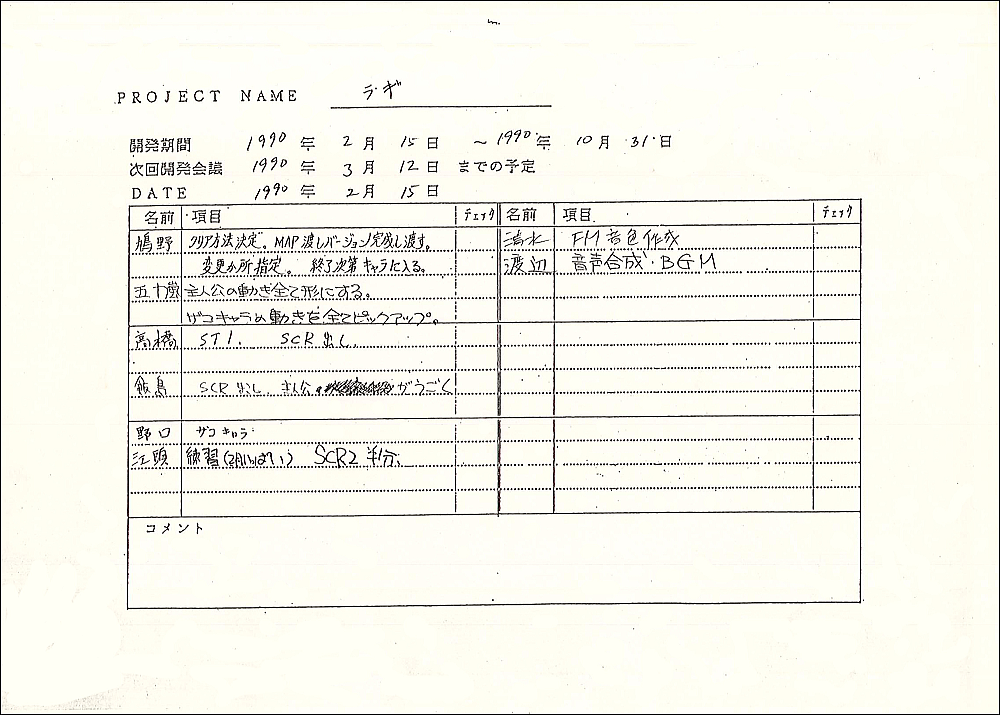 PROJECT NAME ラ・ギ
開発期間 1990年 2月 15日 ～1990年 10月 31日
次回開発会議 1990年 3月 12日 までの予定
DATE 1990年 2月 15日
名前 項目 チェック 名前 項目 チェック
鴇野 クリア方法決定。MAP渡しバージョン完成し渡す。 清水 FM音色作成
変更か所指定。 終了次第キャラに入る。 渡辺 音声合成・BGM
五十嵐 主人公の動き全て形にする。
ザコキャラの動きを全てピックアップ。
高橋 ST1. SCR出し.
飯島 SCR出し. 主人公 がうごく
野口 ザコキャラ
江頭 練習(2月いっぱい) SCR2 半分.
コメント